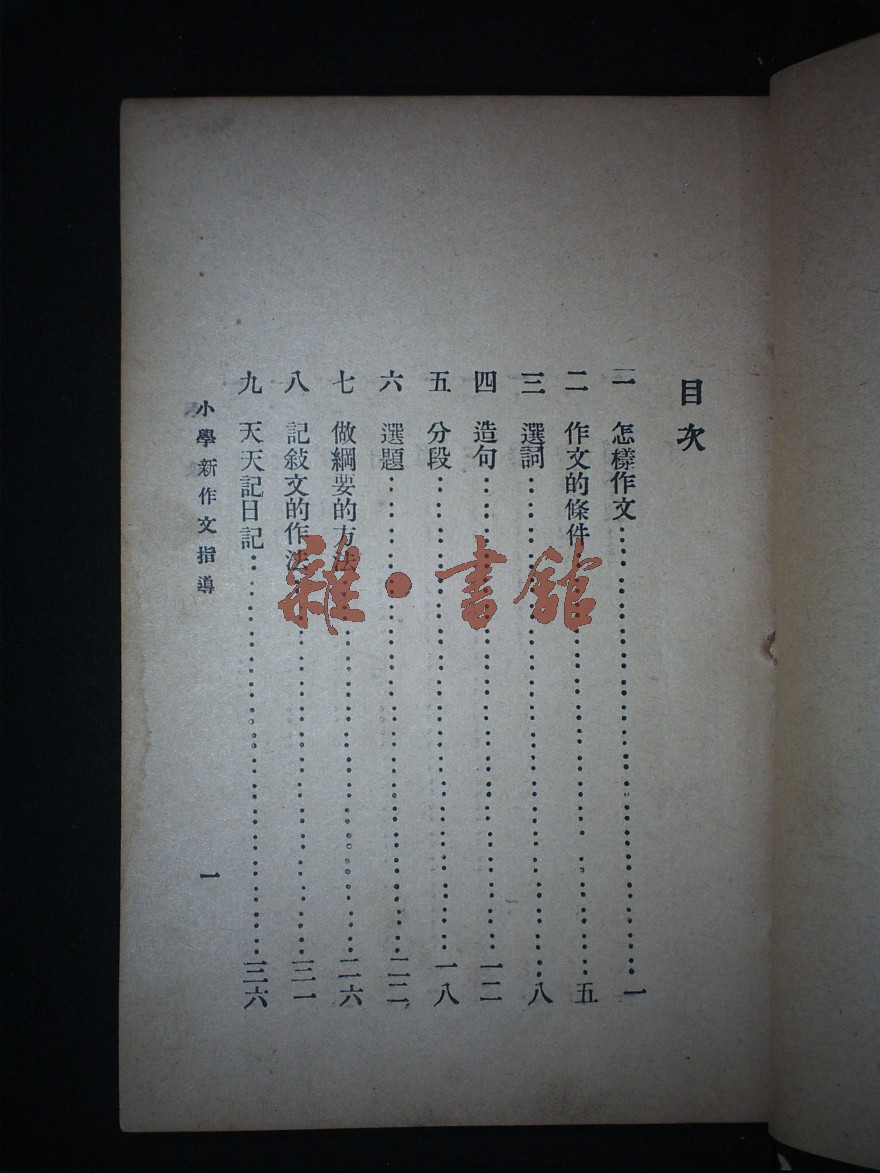 目次
一　怎樣作文……………………一
二　作文的條件……………………五
三　選詞……………………八
四　造句……………………一二
五　分段……………………一八
六　選題……………………二二
七　做綱要的方法……………………二六
八　記敍文的作法……………………三一
九　天天記日記……………………三六
小學新作文指導　一
雜·書館